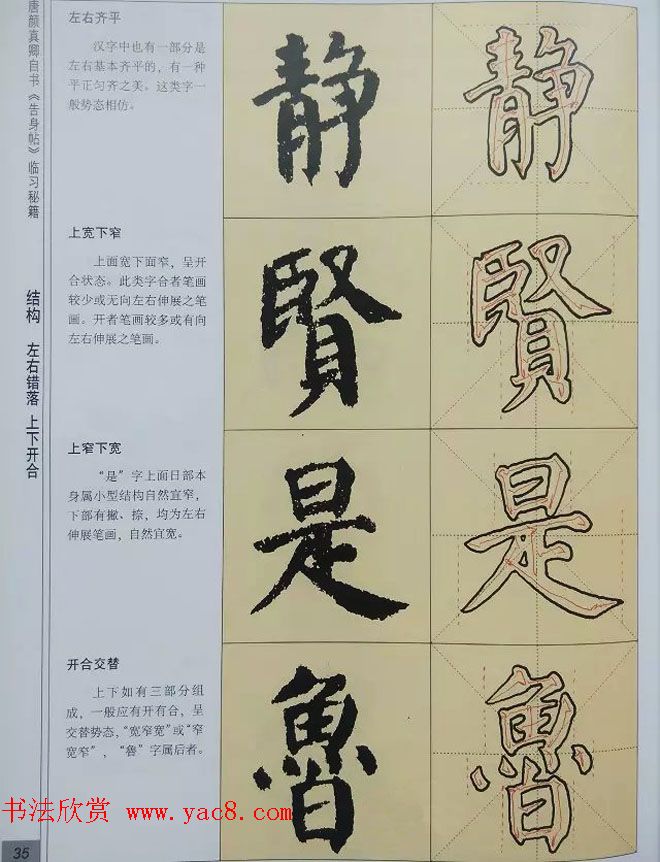 唐颜真卿自书《告身帖》临习秘籍
结构 左右错落 上下开合
左右齐平
汉字中也有一部分是
左右基本齐平的，有一种
平正匀齐之美。这类字一
般势态相仿。
静
静
上宽下窄
上面宽下面窄，呈开
合状态。此类字合者笔画
较少或无向左右伸展之笔
画。开者笔画较多或有向
左右伸展之笔画。
賢
賢
上窄下宽
“是”字上面日部本
身属小型结构自然宜窄，
下部有撇、捺，均为左右
伸展笔画，自然宜宽。
是
是
开合交替
上下如有三部分组
成，一般应有开有合，呈
交替势态，“宽窄宽”或“窄
宽窄”，“鲁”字属后者。
魯
魯
书法欣赏 www.yac8.com
35